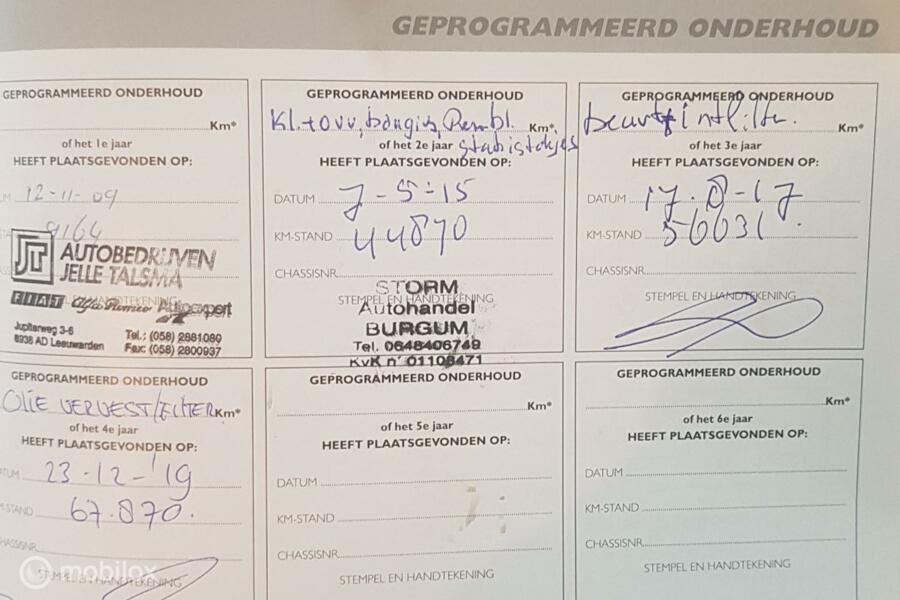 GEPROGRAMMEERD ONDERHOUD
GEPROGRAMMEERD ONDERHOUD
Km*
of het 1e jaar
HEEFT PLAATSGEVONDEN OP:
12-11-09
9164
JT AUTOBEDRIJVEN
JELLE TALSMA
STEMPEL EN HANDTEKENING
FIAT Alfa Romeo Autoexpert
Jupiterweg 3-6
8938 AD Leeuwarden
Tel.: (058) 2881080
Fax: (058) 2800937
GEPROGRAMMEERD ONDERHOUD
Kl. Km*
of het 2e jaar
HEEFT PLAATSGEVONDEN OP:
DATUM 7-5-15
KM-STAND 44870
CHASSISNR.
STORM
STEMPEL EN HANDTEKENING
Autohandel
BURGUM
Tel. 0648406749
KvK n° 01108471
GEPROGRAMMEERD ONDERHOUD
beurt Km*
of het 3e jaar
HEEFT PLAATSGEVONDEN OP:
DATUM 17-8-17
KM-STAND 56631
CHASSISNR.
STEMPEL EN HANDTEKENING
GEPROGRAMMEERD ONDERHOUD
OLIE VERVEST/FILTER Km*
of het 4e jaar
HEEFT PLAATSGEVONDEN OP:
DATUM 23-12-'19
KM-STAND 67.870.
CHASSISNR.
STEMPEL EN HANDTEKENING
mobilox
GEPROGRAMMEERD ONDERHOUD
Km*
of het 5e jaar
HEEFT PLAATSGEVONDEN OP:
DATUM
KM-STAND
CHASSISNR.
STEMPEL EN HANDTEKENING
GEPROGRAMMEERD ONDERHOUD
Km*
of het 6e jaar
HEEFT PLAATSGEVONDEN OP:
DATUM
KM-STAND
CHASSISNR.
STEMPEL EN HANDTEKENING